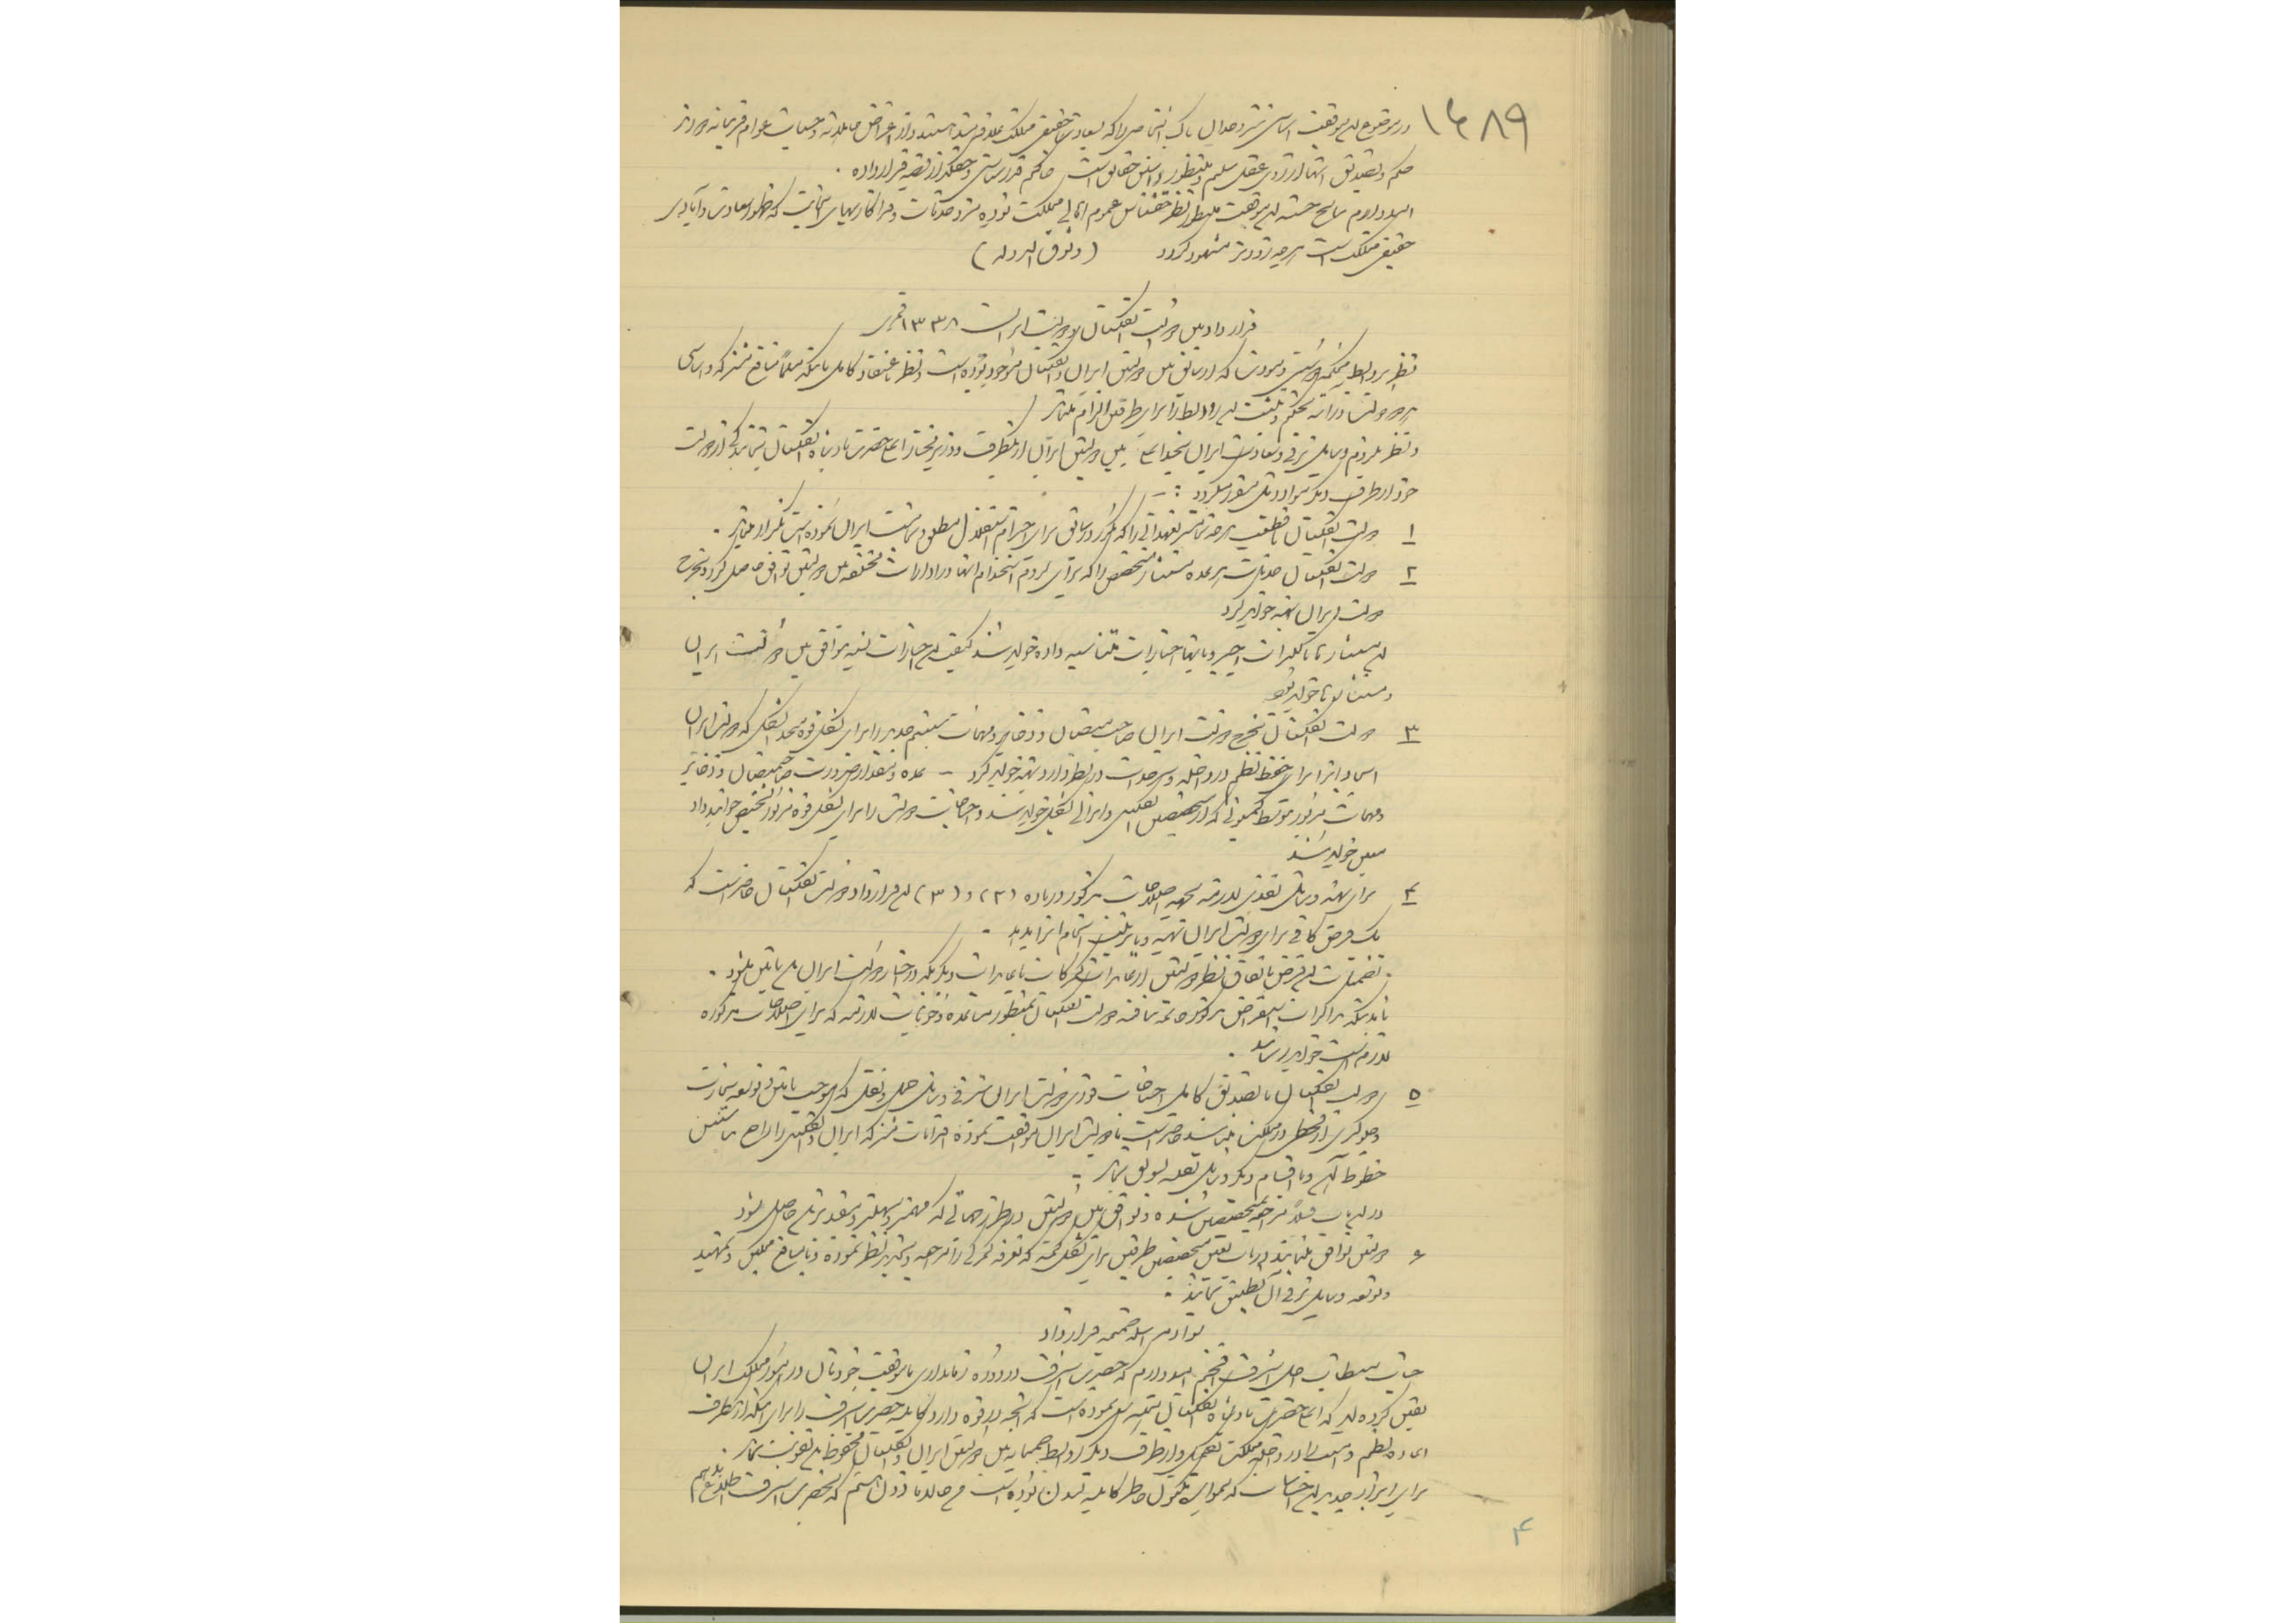 ۱۶۸۹
در موضوع این موفقیت اساسی وجدان پاک اشخاصی را که بسعادت حقیقی مملکت علاقمند هستند و از اغراض جاهلانه و حسیات عوام فریبانه دورند
حکم و تصدیق آنها را از روی عقل سلیم و منظور داشتن حقایق است حاکم قدرشناسی و حقگذار قضیه قرار داده .
امیدوارم نتایج حسنه این موفقیت منظور نظر عموم اهالی مملکت بوده و افکار مهیای که ظهور سعادت و آبادی
حقیقی مملکت است هرچه زودتر مشهود گردد (وثوق الدوله)
قرارداد بین دولت انگلستان و دولت ایران ۱۳۳۸ قمری
نظر بروابط محکمه دوستی و مودت که از سابق بین دولتین ایران و انگلستان موجود بوده است و نظر باعتقاد کامل باینکه مسلماً منافع مشترکه و اساسی
هر دو دولت در آتیه تحکیم و تثبیت این روابط را برای طرفین الزام مینماید
و نظر بلزوم وسایل ترقی و سعادت ایران بحد اعلی بین دولت ایران از یکطرف و وزیر مختار اعلیحضرت پادشاه انگلستان بنمایندگی از دولت
خود از طرف دیگر مواد ذیل مقرر میگردد :-
۱ دولت انگلستان با قطعیت هرچه تمامتر تعهداتی را که مکرر در سابق برای احترام استقلال مطلق و تمامیت ایران نموده است تکرار مینماید .
۲ دولت انگلستان خدمات هر عده مستشار متخصص را که برای لزوم استخدام آنها در ادارات مختلفه بین دولتین توافق حاصل گردد بخرج
دولت ایران تهیه خواهد کرد
این مستشارها با کنترات اجیر و بآنها اختیارات متناسبه داده خواهد شد کیفیت این اختیارات بسته بتوافق بین دولت ایران
و مستشارها خواهد بود
۳ دولت انگلستان بخرج دولت ایران صاحبمنصبان و ذخایر و مهمات سیستم جدید را برای تشکیل قوه متحدالشکلی که دولت ایران
ایجاد آنرا برای حفظ نظم در داخله و سرحدات در نظر دارد تهیه خواهد کرد - عده و مقدار ضرورت صاحبمنصبان و ذخایر
و مهمات مزبور توسط کمیسیونی که از متخصصین انگلیسی و ایرانی تشکیل خواهد شد و احتیاجات دولت را برای تشکیل قوه مزبور تشخیص خواهد داد
معین خواهد شد
۴ برای تهیه وسائل نقدی لازمه بجهت اصلاحات مذکور در ماده (۲) و (۳) این قرارداد دولت انگلستان حاضر است که
یک قرض کافی برای دولت ایران تهیه و یا ترتیب انجام آنرا بدهد .
تضمینات این قرض باتفاق نظر دولتین از عایدات گمرکات یا عایدات دیگری که در اختیار دولت ایران باشد تعیین میشود .
تا مدتیکه مذاکرات استقراض مذکور خاتمه نیافته دولت انگلستان بطور مساعده وجوهات لازمه که برای اصلاحات مذکوره
لازم است خواهد رساند .
۵ دولت انگلستان با تصدیق کامل احتیاجات فوری دولت ایران بترقی وسائل حمل و نقل که موجب تأمین و توسعه تجارت
و جلوگیری از قحطی در مملکت میباشد حاضر است با دولت ایران موافقت نموده اقدامات مشترکه ایران و انگلیس را راجع بتأسیس
خطوط آهن و یا اقسام دیگر وسائل نقلیه تشویق نماید .
در این باب قبلاً مراجعه بمتخصصین شده و توافق بین دولتین در طرحهائی که مهمتر و سهلتر و مفیدتر باشد حاصل شود
۶ دولتین توافق مینمایند در باب تعیین متخصصین طرفین برای تشکیل کمیته که تعرفه گمرکی را مراجعه و تجدید نظر نموده و با منافع مملکتین و تمهید
و توسعه وسایل ترقی آن تطبیق نمایند .
سواد مراسله ضمیمه قرارداد
جناب مستطاب اجل اشرف افخم امیدوارم که حضرت اشرف در دوره زمامداری با موفقیت خودتان در امور مملکت ایران
یقین کرده‌اید که اعلیحضرت پادشاه انگلستان همیشه سعی نموده است که آنچه در قوه دارد کابینه حضرت اشرف را برای اینکه از یکطرف
اعاده نظم و امنیت را در داخله مملکت تکمیل و از طرف دیگر روابط صمیمانه بین دولتین ایران و انگلستان محفوظ باشد تقویت نماید .
برای ابراز جدید این احساسات که همواره مکنون خاطر کابینه لندن بوده است من حالا مأذون هستم که بحضرت اشرف اطلاع بدهم
۴